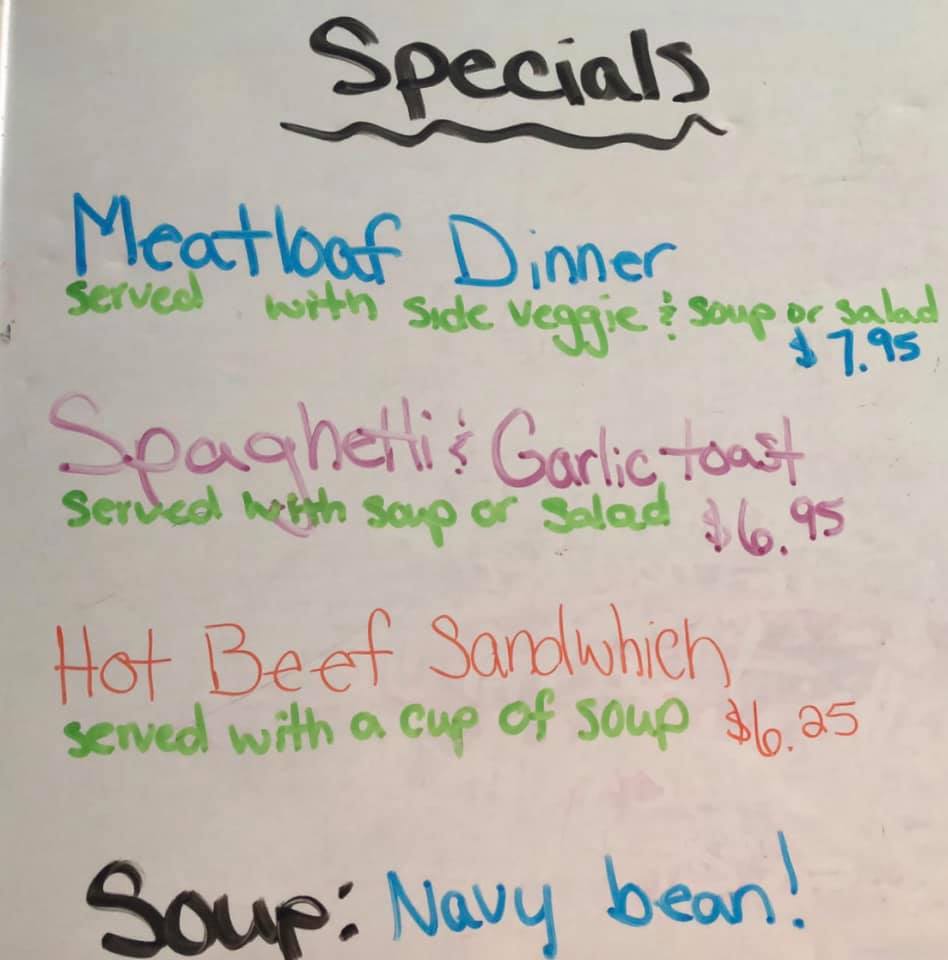 Specials
Meatloaf Dinner
served with side veggie & soup or salad
$7.95
Spaghetti & Garlic toast
served with soup or salad $6.95
Hot Beef Sandwhich
served with a cup of soup $6.25
Soup: Navy bean!